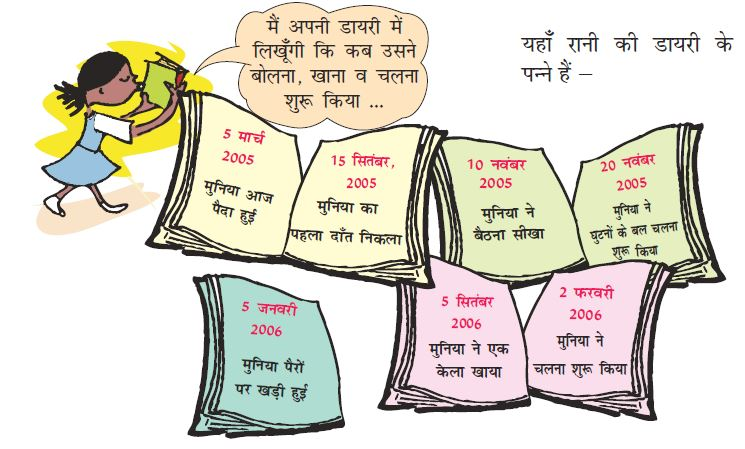 मैं अपनी डायरी में
लिखूँगी कि कब उसने
बोलना, खाना व चलना
शुरू किया ...
यहाँ रानी की डायरी के
पन्ने हैं –
5 मार्च
2005
मुनिया आज
पैदा हुई
15 सितंबर,
2005
मुनिया का
पहला दाँत निकला
10 नवंबर
2005
मुनिया ने
बैठना सीखा
20 नवंबर
2005
मुनिया ने
घुटनों के बल चलना
शुरू किया
5 जनवरी
2006
मुनिया पैरों
पर खड़ी हुई
5 सितंबर
2006
मुनिया ने एक
केला खाया
2 फरवरी
2006
मुनिया ने
चलना शुरू किया